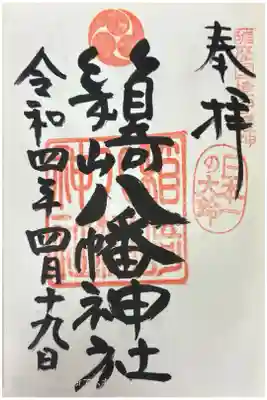 奉拝
日本一
の大鈴
箱崎八幡神社
令和四年四月十九日